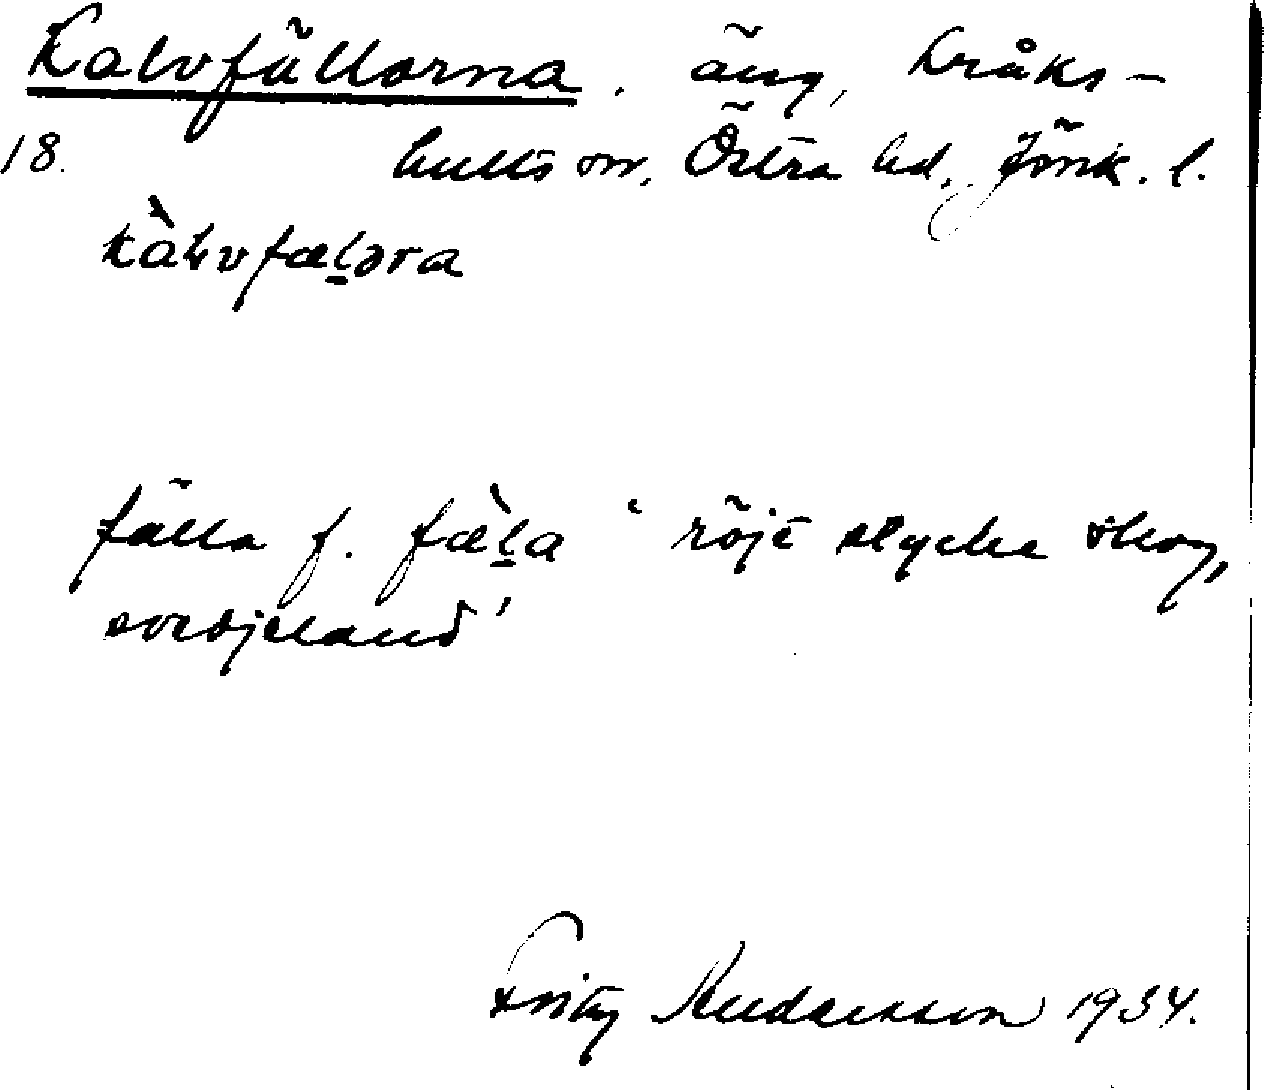 Kalvfällorna. äng, Kråks-
18. hults sn. Östra hd. Jönk. l.
kàlvfælǝra
fälla f. fæ̀la 'röjt stycke skog,
svedjeland'
Fritz Andersson 1934.